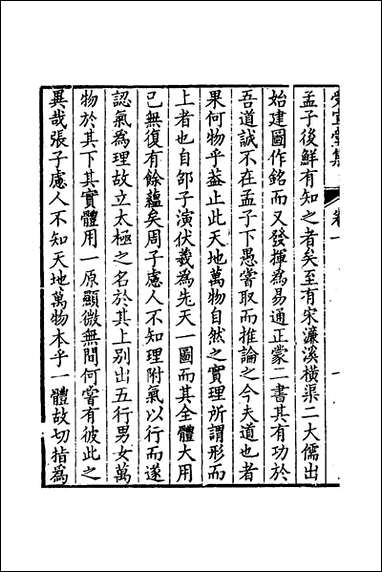 卷一
孟子後鮮有知之者矣至有宋濂溪橫渠二大儒出
始建圖作銘而又發揮為易通正蒙二書其有功於
吾道誠不在孟子下愚嘗取而推論之今夫道也者
果何物乎蓋止此天地萬物自然之實理所謂形而
上者也自邵子演伏羲為先天一圖而其全體大用
已無復有餘蘊矣周子慮人不知理附氣以行而遂
認氣為理故立太極之名於其上別出五行男女萬
物於其下其實體用一原顯微無間何嘗有彼此之
異哉張子慮人不知天地萬物本乎一體故切指為